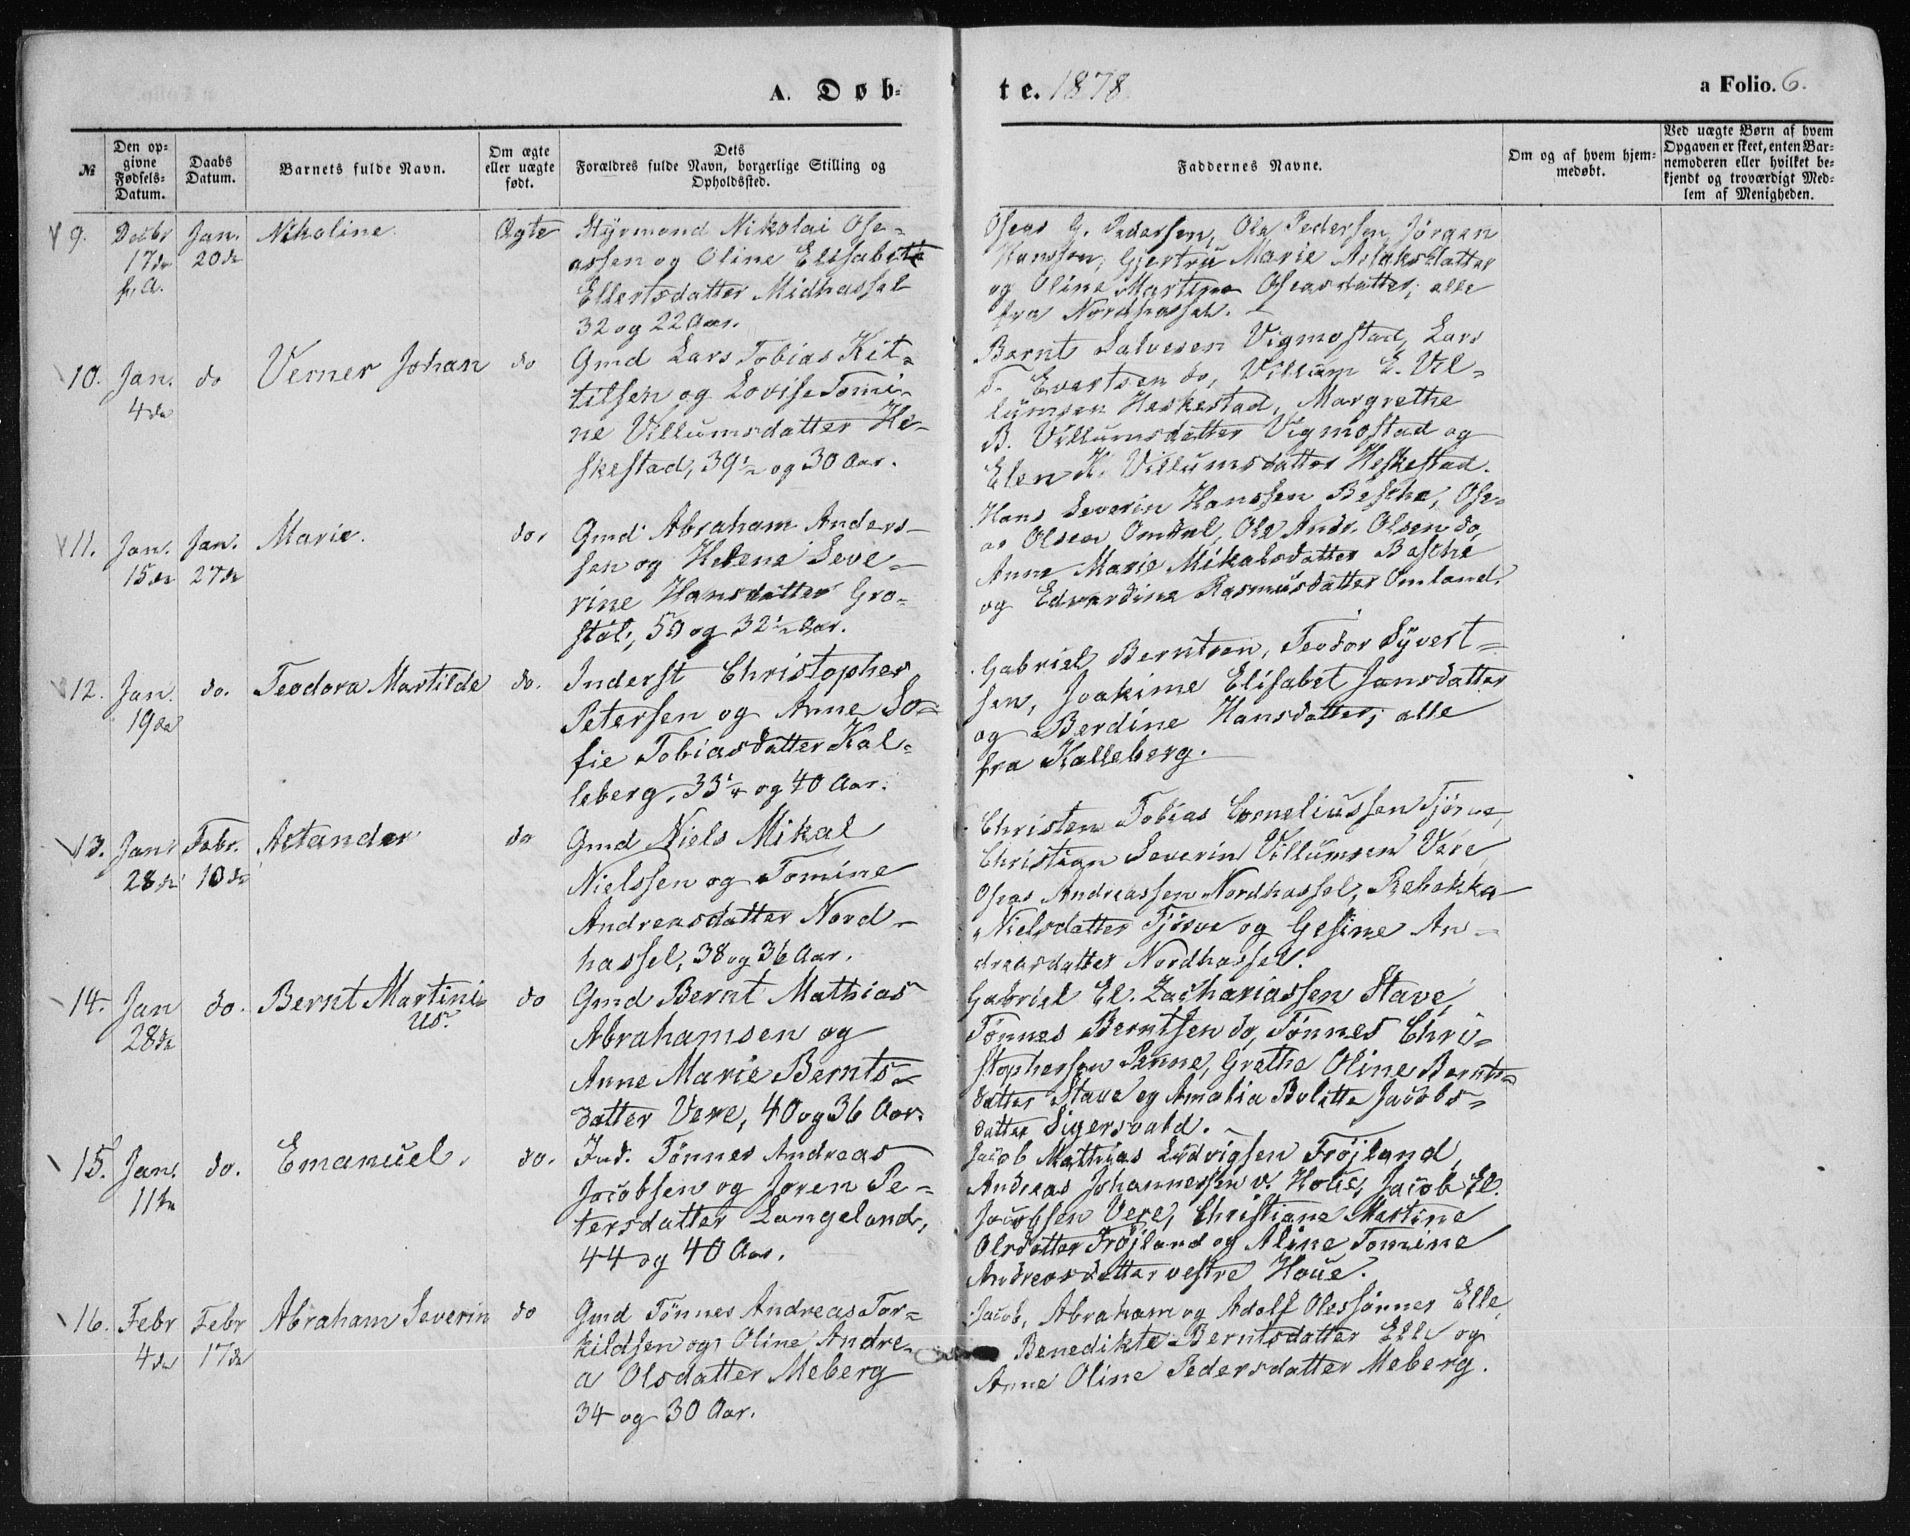 A. Døb-
te. 1878.
a Folio. 6.
№
Den op-
givne
Fødsels-
Datum.
Daabs
Datum.
Barnets fulde Navn.
Om ægte
eller uægte
født.
Dets
Forældres fulde Navn, borgerlige Stilling og
Opholdssted.
Faddernes Navne.
Om og af hvem hjem-
medøbt.
Ved uægte Børn af hvem
Opgaven er skeet, enten Bar-
nemoderen eller hvilket be-
kjendt og troværdigt Med-
lem af Menigheden.
9.
Decbr
17de
f. A.
Jan.
20de
Nikoline.
Ægte
Styrmand Nikolai Ose-
assen og Oline Elisabet
Ellertsdatter Midhassel
32 og 22 Aar.
Oseas G. Pedersen, Ole Pedersen, Jørgen
Hanssen, Gjertru Marie Aslaksdatter
og Oline Martine Oseasdatter, alle
fra Nordhassel.
10.
Jan.
4de
do
Verner Johan
do
Gmd Lars Tobias Kit-
tilsen og Lovise Tomi-
ne Villumsdatter He-
skestad, 39½ og 30 Aar.
Bernt Salvesen Vigmostad, Lars
T. Evertsen do, Villum E. Vil-
lumsen Heskestad, Margrethe
B. Villumsdatter Vigmostad og
Elen K. Villumsdatter Heskestad.
11.
Jan.
15de
Jan.
27de
Marie.
do.
Gmd Abraham Anders-
sen og Helene Seve-
rine Hansdatter Gro-
støl, 50 og 32½ Aar.
Hans Severin Hanssen Bøsche, Ose-
as Olsen Omdal, Ole Andr. Olsen do,
Anne Marie Mikalsdatter Bøsche
og Edvardine Rasmusdatter Omland.
12.
Jan.
19de
do.
Teodora Martilde
do.
Inderst Christopher
Petersen og Anne So-
fie Tobiasdatter Kal-
leberg, 33¼ og 40 Aar.
Gabriel Berntsen, Teodor Syvert-
sen, Joakime Elisabet Jansdatter
og Berdine Hansdatter, alle
fra Kalleberg.
13.
Jan
28de
Febr.
10de
Actander
do
Gmd Niels Mikal
Nielssen og Tomine
Andreasdatter Nord-
hassel, 38 og 36 Aar.
Christen Tobias Corneliussen Tjørve,
Christian Severin Villumsen Vere,
Oseas Andreassen Nordhassel, Rebekka
Nielsdatter Tjørve og Gesine An-
dreasdatter Nordhassel.
14.
Jan
28de
do.
Bernt Martini-
us.
do
Gmd Bernt Mathias
Abrahamsen og
Anne Marie Bernts-
datter Vere, 40 og 36 Aar.
Gabriel El. Zachariassen Stave,
Tønnes Berntsen do, Tønnes Chri-
stophersen Penne, Grethe Oline Bernts-
datter Stave og Amalia Bolette Jacobs-
datter Sigersvold.
15.
Jan.
11te
do.
Emanuel.
do.
Ind. Tønnes Andreas
Jacobsen og Joren Pe-
tersdatter Langeland,
44 og 40 Aar.
Jacob Mathias Ludvigsen Frøjland,
Andreas Johannessen v. Houe, Jacob El.
Jacobsen Vere, Christiane Martine
Olsdatter Frøjland og Aline Tomine
Andreasdatter vestre Houe.
16.
Febr
4de
Febr
17de
Abraham Severin
do
Gmd Tønnes Andreas Tor-
kildsen og Oline Andre-
a Olsdatter Meberg
34 og 30 Aar.
Jacob, Abraham og Adolf Olessønner Elle,
Benedikte Berntsdatter Elle og
Anne Oline Pedersdatter Meberg.